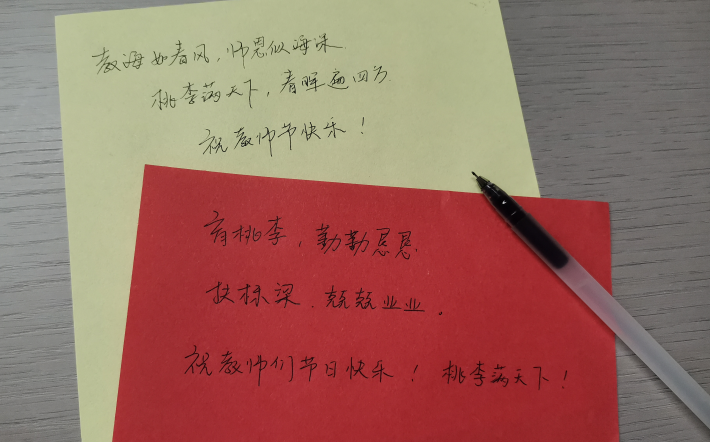 教诲如春风，师恩似海深
桃李满天下，春晖遍四方
祝教师节快乐！
育桃李，勤勤恳恳
扶栋梁，兢兢业业。
祝教师们节日快乐！桃李满天下！